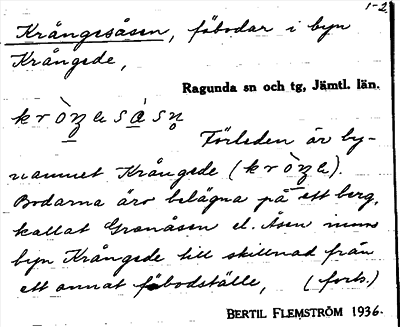 1-2
Krångesåsen, fäbodar i byn
Krångede,
Ragunda sn och tg, Jämtl. län.
Förleden är by-
namnet Krångede
Bodarna äro belägna på ett berg,
kallat Granåsen el. Åsen inom
byn Krångede till skillnad från
ett annat fäbodställe, (forts.)
BERTIL FLEMSTRÖM 1936.